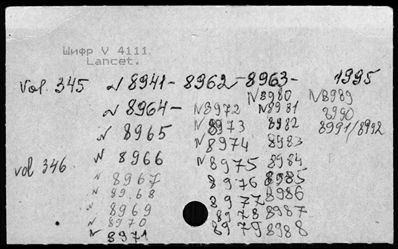 Шифр V 4111.
Lancet.
Vol. 345 N 8941- 8962- 8963- 1995
N 8964- N 8972 N 8980 N 8989
N 8965 N 8973 N 8981 8990
N 8966 N 8974 8982 8991/8992
vol 346 N 8967 N 8975 8983
N 8968 8976 8984
N 8969 8977 8985
N 8970 8978 8986
N 8971 8979 8987
8988